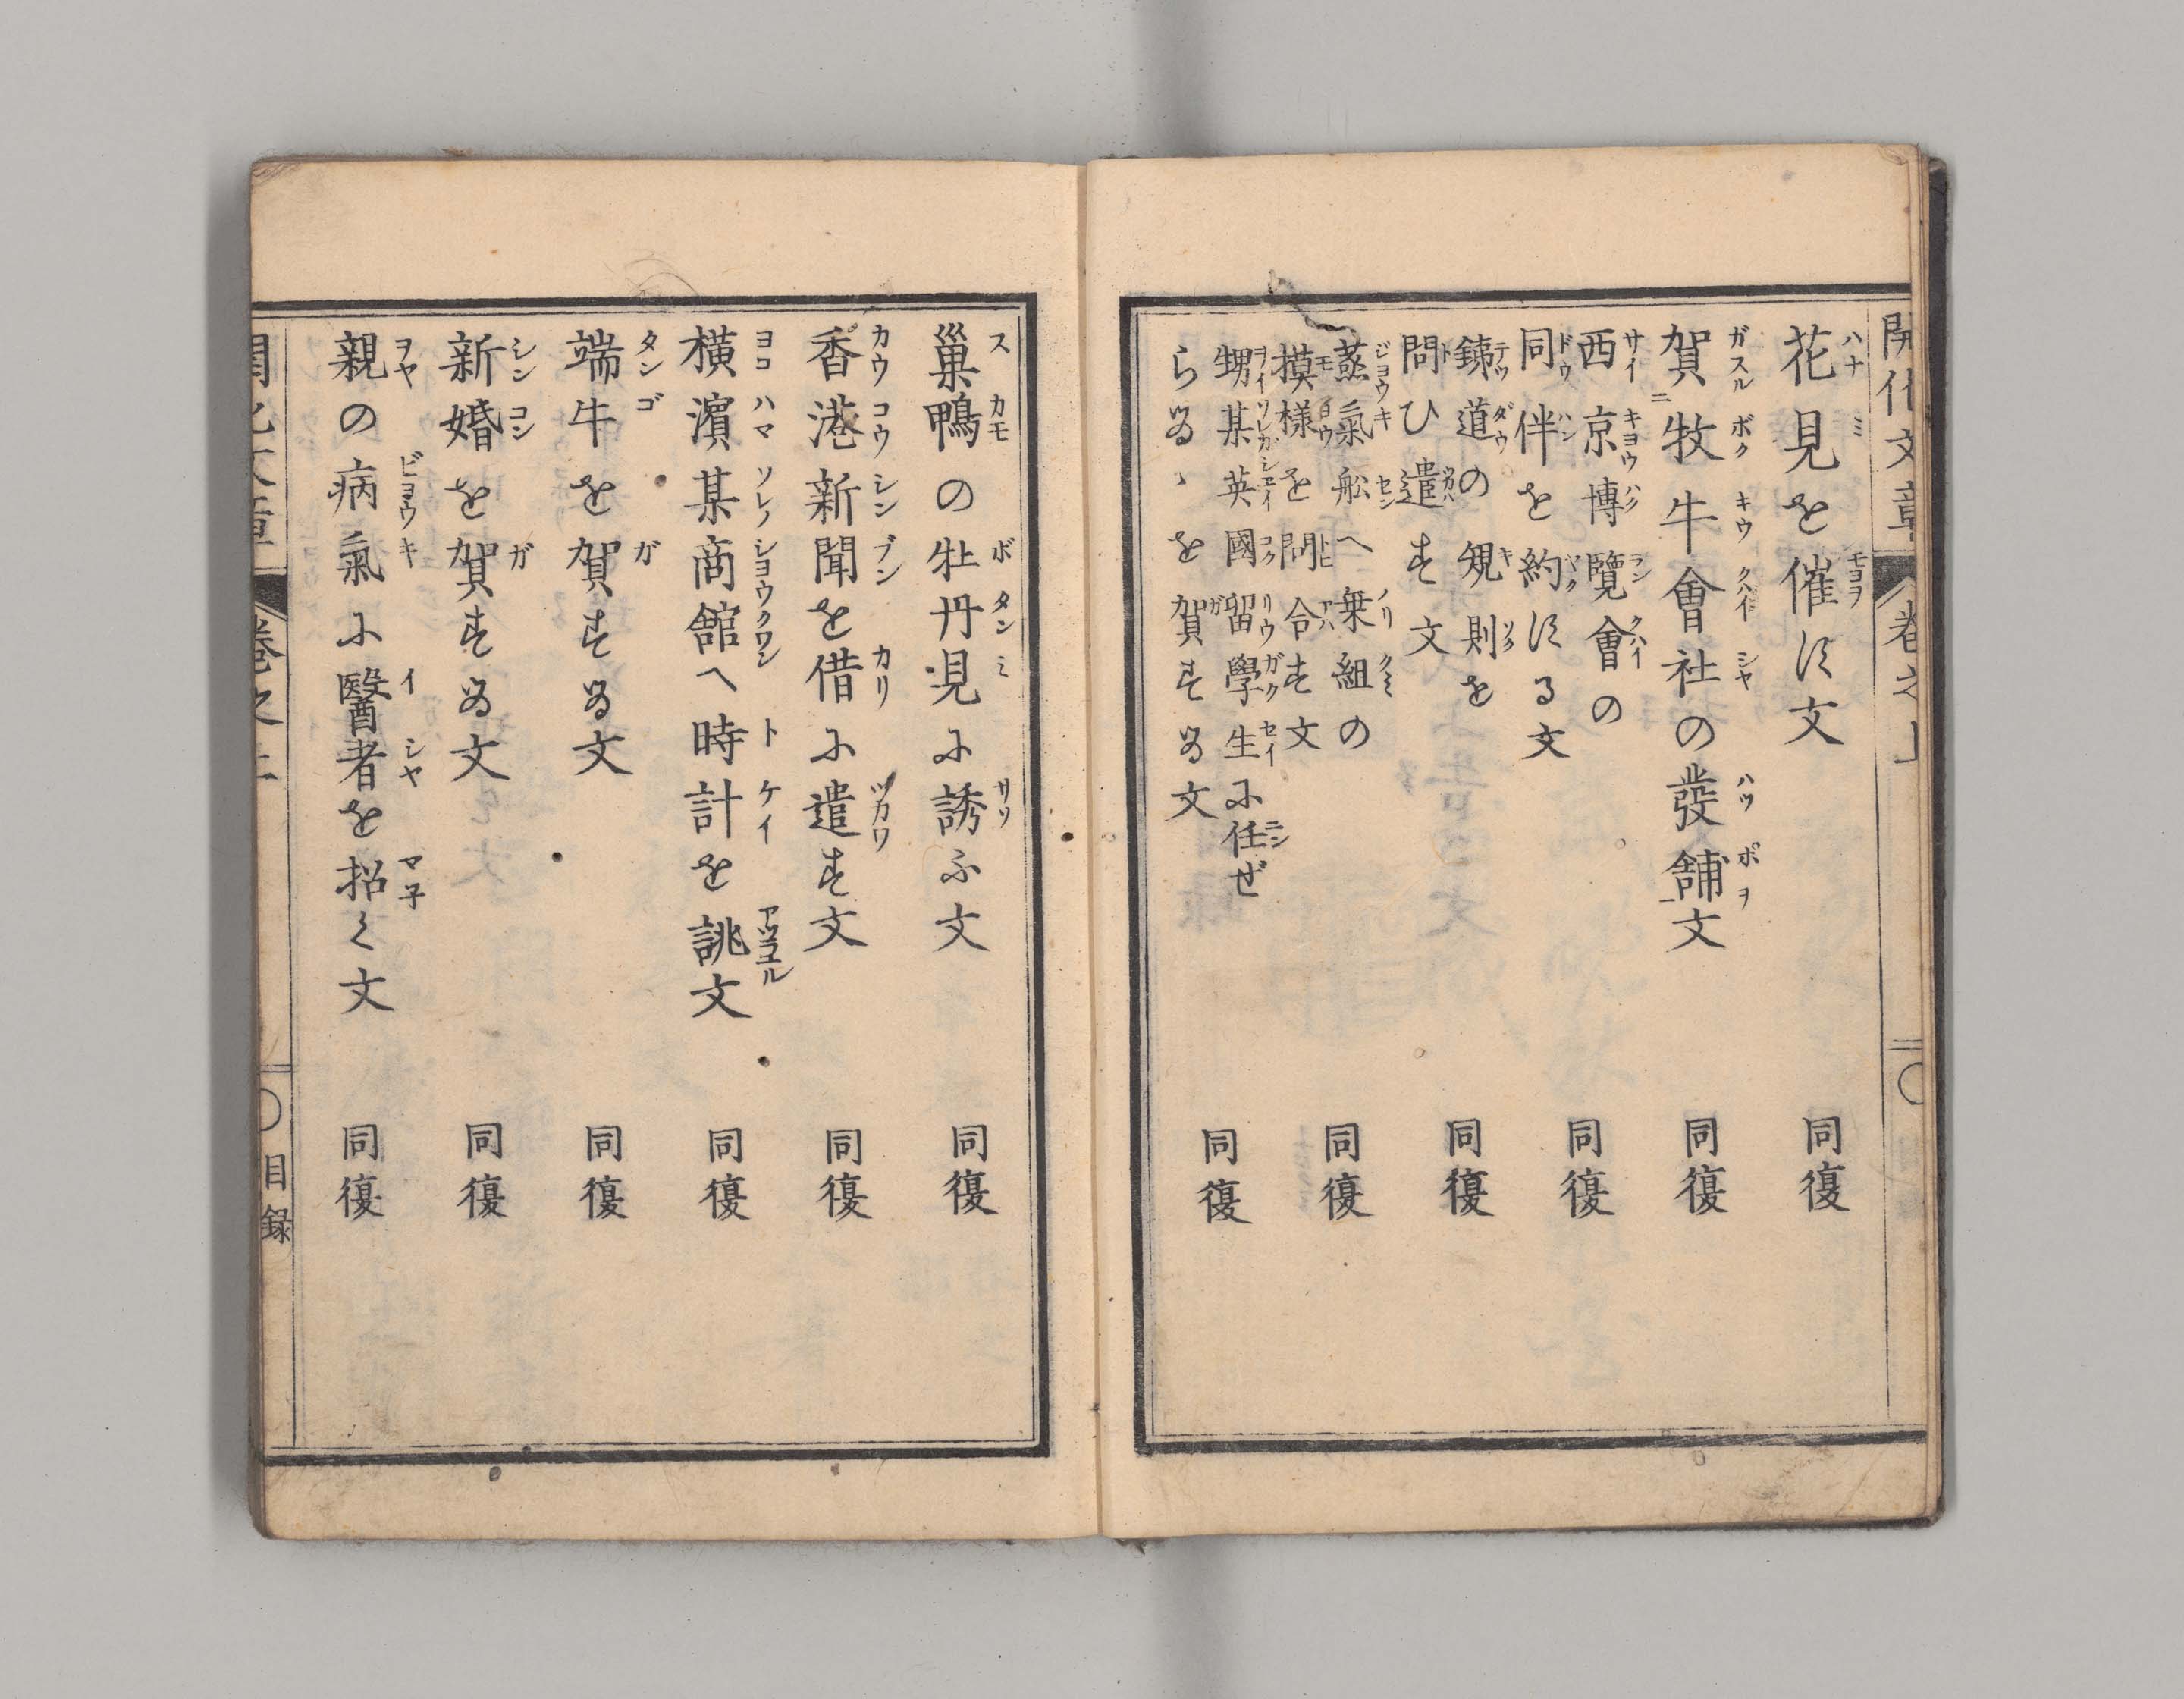 開化文章 巻之上
花見を催す文 同復
賀牧牛會社の發舗文 同復
西京博覽會の
同伴を約する文 同復
銕道の規則を
問ひ遣す文 同復
蒸氣舩へ乗組の
摸様を問合す文 同復
甥某英國留學生に任ぜ
らるゝを賀する文 同復
巣鴨の牡丹見に誘ふ文 同復
香港新聞を借に遣す文 同復
横濱某商館へ時計を誂文 同復
端午を賀する文 同復
新婚を賀する文 同復
親の病氣に醫者を招く文 同復
開化文章 巻之上 〇目録